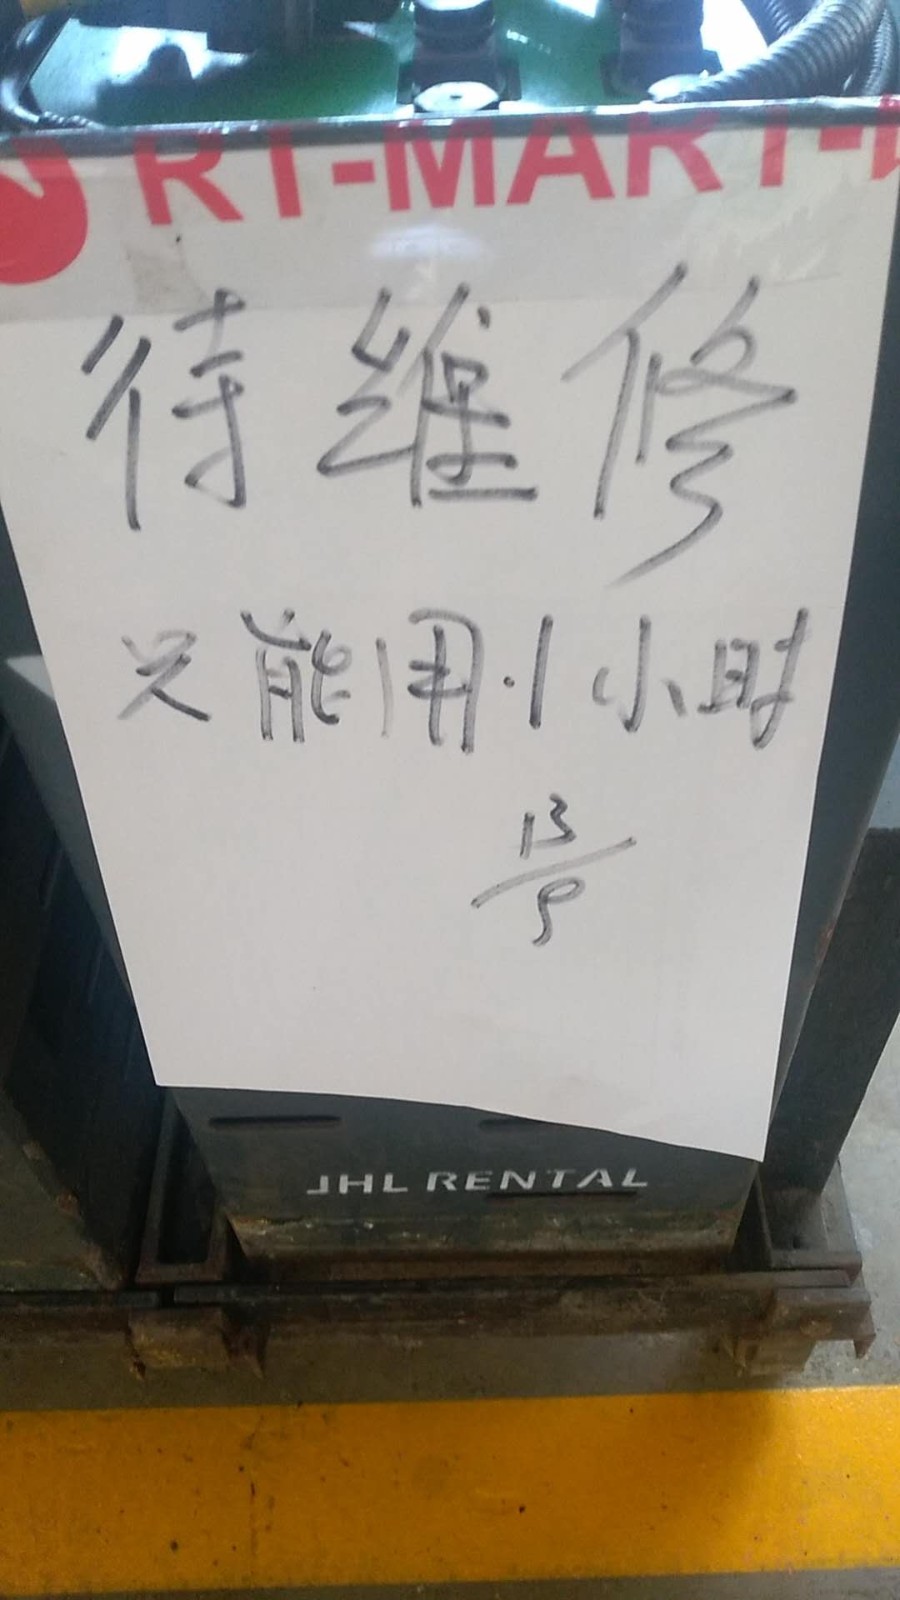 RT-MART
待维修
只能用1小时
13/9
JHL RENTAL